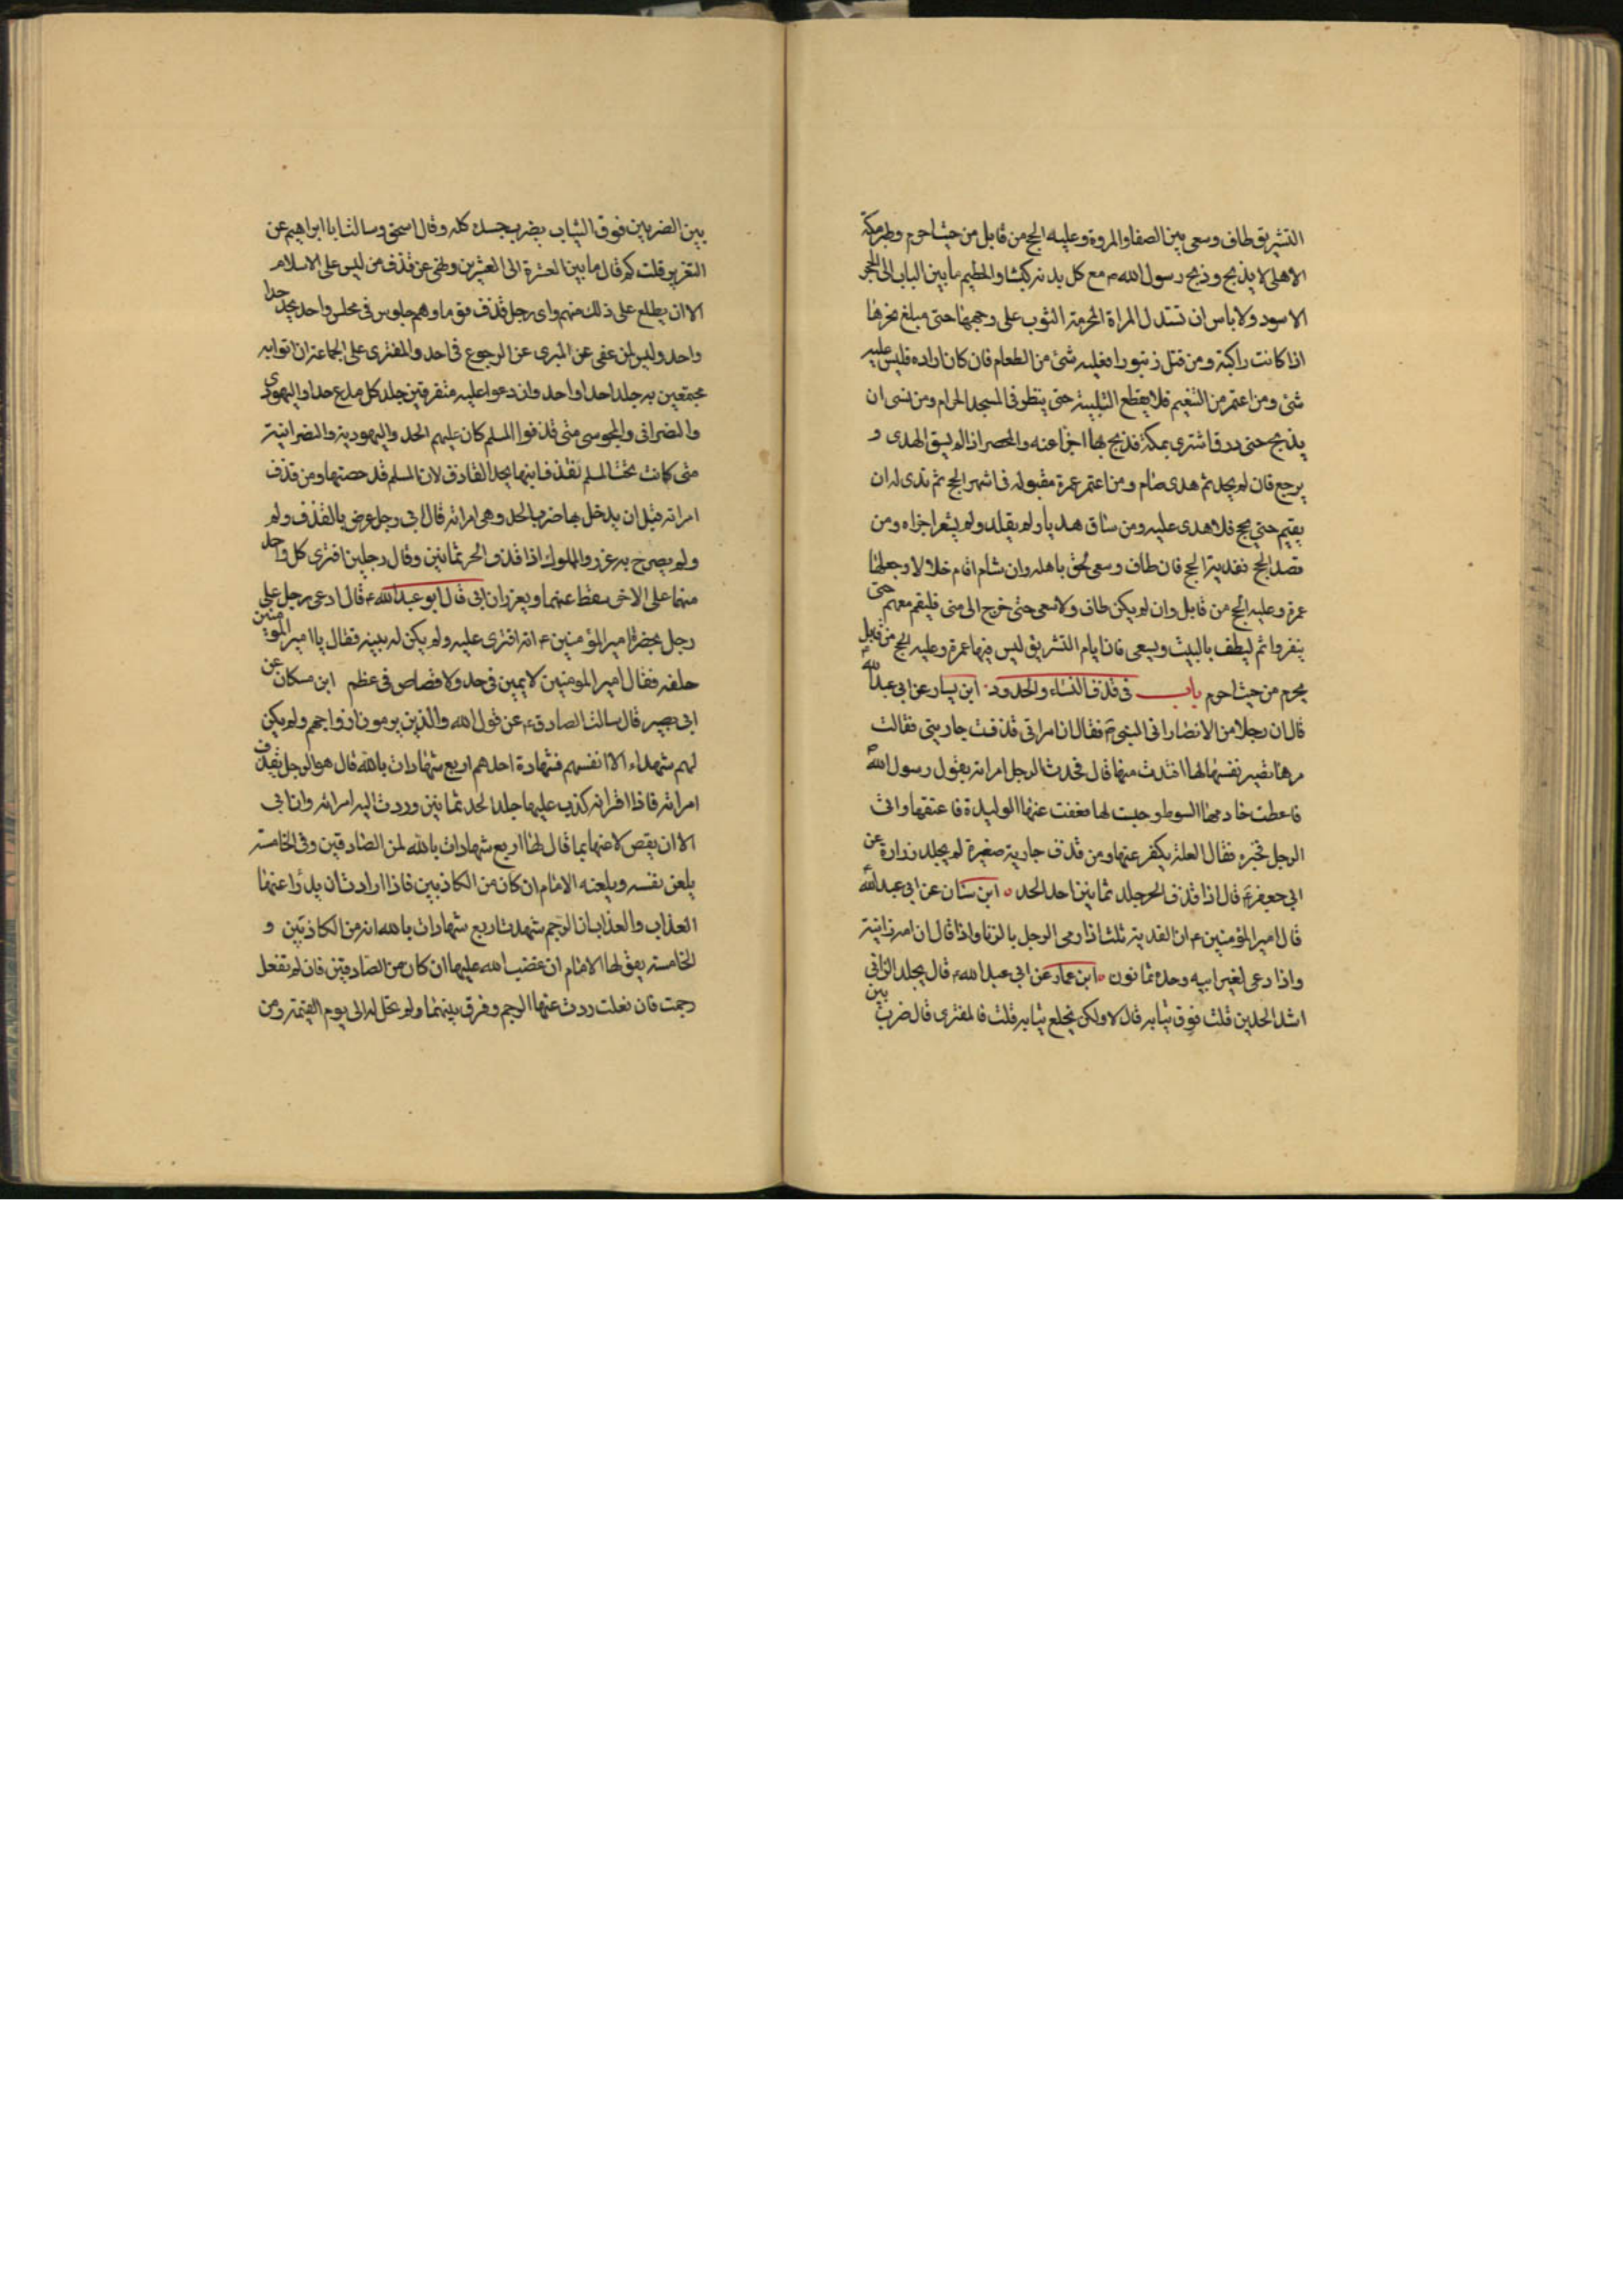 التشريق طاف وسعى بين الصفا والمروة وعليه الحج من قابل من حيث احرم
الاهلى لا يذبح وذبح رسول الله ص مع كل بدنه كبشا والحطيم ما بين الباب الى الحجر
الاسود ولا باس ان تسدل المراة المحرمة الثوب على وجهها حتى مبلغ نحرها
اذا كانت راكبة ومن قتل زنبورا فعليه شئ من الطعام فان كان اراده فليس عليه
شئ ومن اعتمر من التنعيم فلا يقطع التلبية حتى ينظر فى المسجد الحرام ومن نسى ان
يذبح حتى زار فاشترى بمكة فذبح بها اجزا عنه والمحصر اذا لم يسق الهدى و
يرجع فان لم يجد ثم هدى صام ومن اعتمر عمرة مقبوله فى اشهر الحج ثم بدى له ان
يقيم حتى يحج فلا هدى عليه ومن ساق هديا ولم يقلد ولم يشعر اجزاه ومن
قصد الحج فان طاف وسعى لحق باهله وان شاء اقام حلالا وجعلها
عمرة وعليه الحج من قابل وان لم يكن طاف ولا سعى حتى خرج الى منى فليقم معهم حتى
ينفروا ثم ليطف بالبيت ويسعى فان ايام التشريق ليس فيها عمرة وعليه الحج من قابل
يحرم من حيث احرم باب فى قذف النساء والحدود ابن يسار عن ابى عبد الله
قال ان رجلا من الانصار اتى النبى فقال ان امراتى قذفت جاريتى فقالت
مرها تصبر نفسها لها اقتدت منها قال فحدث الرجل امراته بقول رسول الله
فاعطت خادمها السوط وجلست لها فعفت عنها الوليدة فاعتقها واتى
الرجل فخبره فقال لعله يكفر عنها ومن قذف جارية صغيرة لم يجلد زرارة عن
ابى جعفر قال اذا قذف الحر جلد ثمانين احد الحد ابن سنان عن ابى عبد الله
قال امير المؤمنين ان الفدية ثلث اذا رمى الرجل بالزنا واذا قال ان امه زانية
واذا دعى لغير ابيه وحده ثمانون ابن عمار عن ابى عبد الله قال يجلد الزانى
اشد الحدين قلت فوق ثيابه قال لا ولكن يخلع ثيابه قلت فالمفترى قال ضرب بين
بين الضربين فوق الثياب يضرب جسده كله وقال اسحق وسالت ابا ابراهيم عن
التعزير قلت كم قال ما بين العشرة الى العشرين ونهى عن قذف من ليس على الاسلام
الا ان يطلع على ذلك منهم واى رجل قذف قوما وهم جلوس فى مجلس واحد يجلد حدا
واحد وليس لمن عفى عن المفترى عن الرجوع فى احد والمفترى على الجماعة ان اتوا به
مجتمعين به جلد حدا واحد وان دعوا عليه متفرقين جلد كل مدع حدا واليهودى
والنصرانى والمجوسى متى قذفوا المسلم كان عليهم الحد واليهودية والنصرانية
متى كانت تحت المسلم فقذف ابنها يحد القاذف لان المسلم قد حصنها ومن قذف
امراته قبل ان يدخل بها ضرب الحد وهى امراته قال ابى رجل عرض بالقذف ولم
ولم يصرح به عزر والمملوك اذا قذف الحر ثمانين وقال رجلين افترى كل واحد
منهما على الاخر سقط عنهما ويعزران ابى قال ابو عبد الله ع قال ادعى رجل على
رجل بحضرة امير المؤمنين ع انه افترى عليه ولم يكن له بينه فقال يا امير المؤمنين
حلفه فقال امير المومنين لا يمين فى حد ولا قصاص فى عظم ابن مسكان عن
ابى بصير قال سالت الصادق ع عن قول الله والذين يرمون ازواجهم ولم يكن
لهم شهداء الا انفسهم فشهادة احدهم اربع شهادات بالله قال هو الرجل يقذف
امراته فاذا اقر انه كذب عليها جلد الحد ثمانين وردت اليه امراته وان ابى
الا ان يقص لاعنها بما قال لها اربع شهادات بالله لمن الصادقين وفى الخامسة
يلعن نفسه ويلعنه الامام ان كان من الكاذبين فاذا ارادت ان يدرا عنها
العذاب والعذاب الرجم شهدت اربع شهادات بالله انه من الكاذبين و
الخامسة يقول لها الامام ان غضب الله عليها ان كان من الصادقين فان لم تفعل
رجمت فان فعلت ردت عنها الرجم وفرق بينهما ولم تحل له الى يوم القيمة ومن